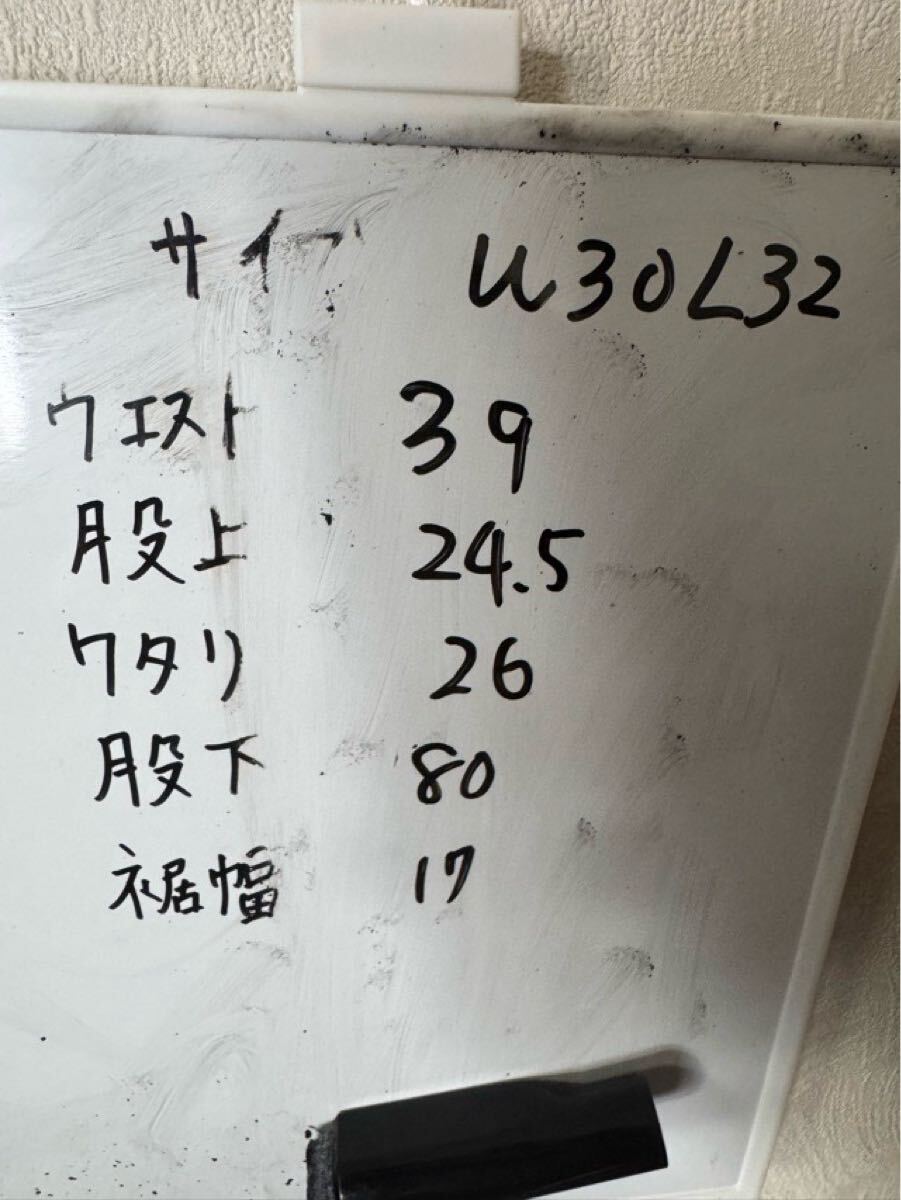 サイズ U30L32
ウエスト 39
股上 24.5
ワタリ 26
股下 80
裾幅 17